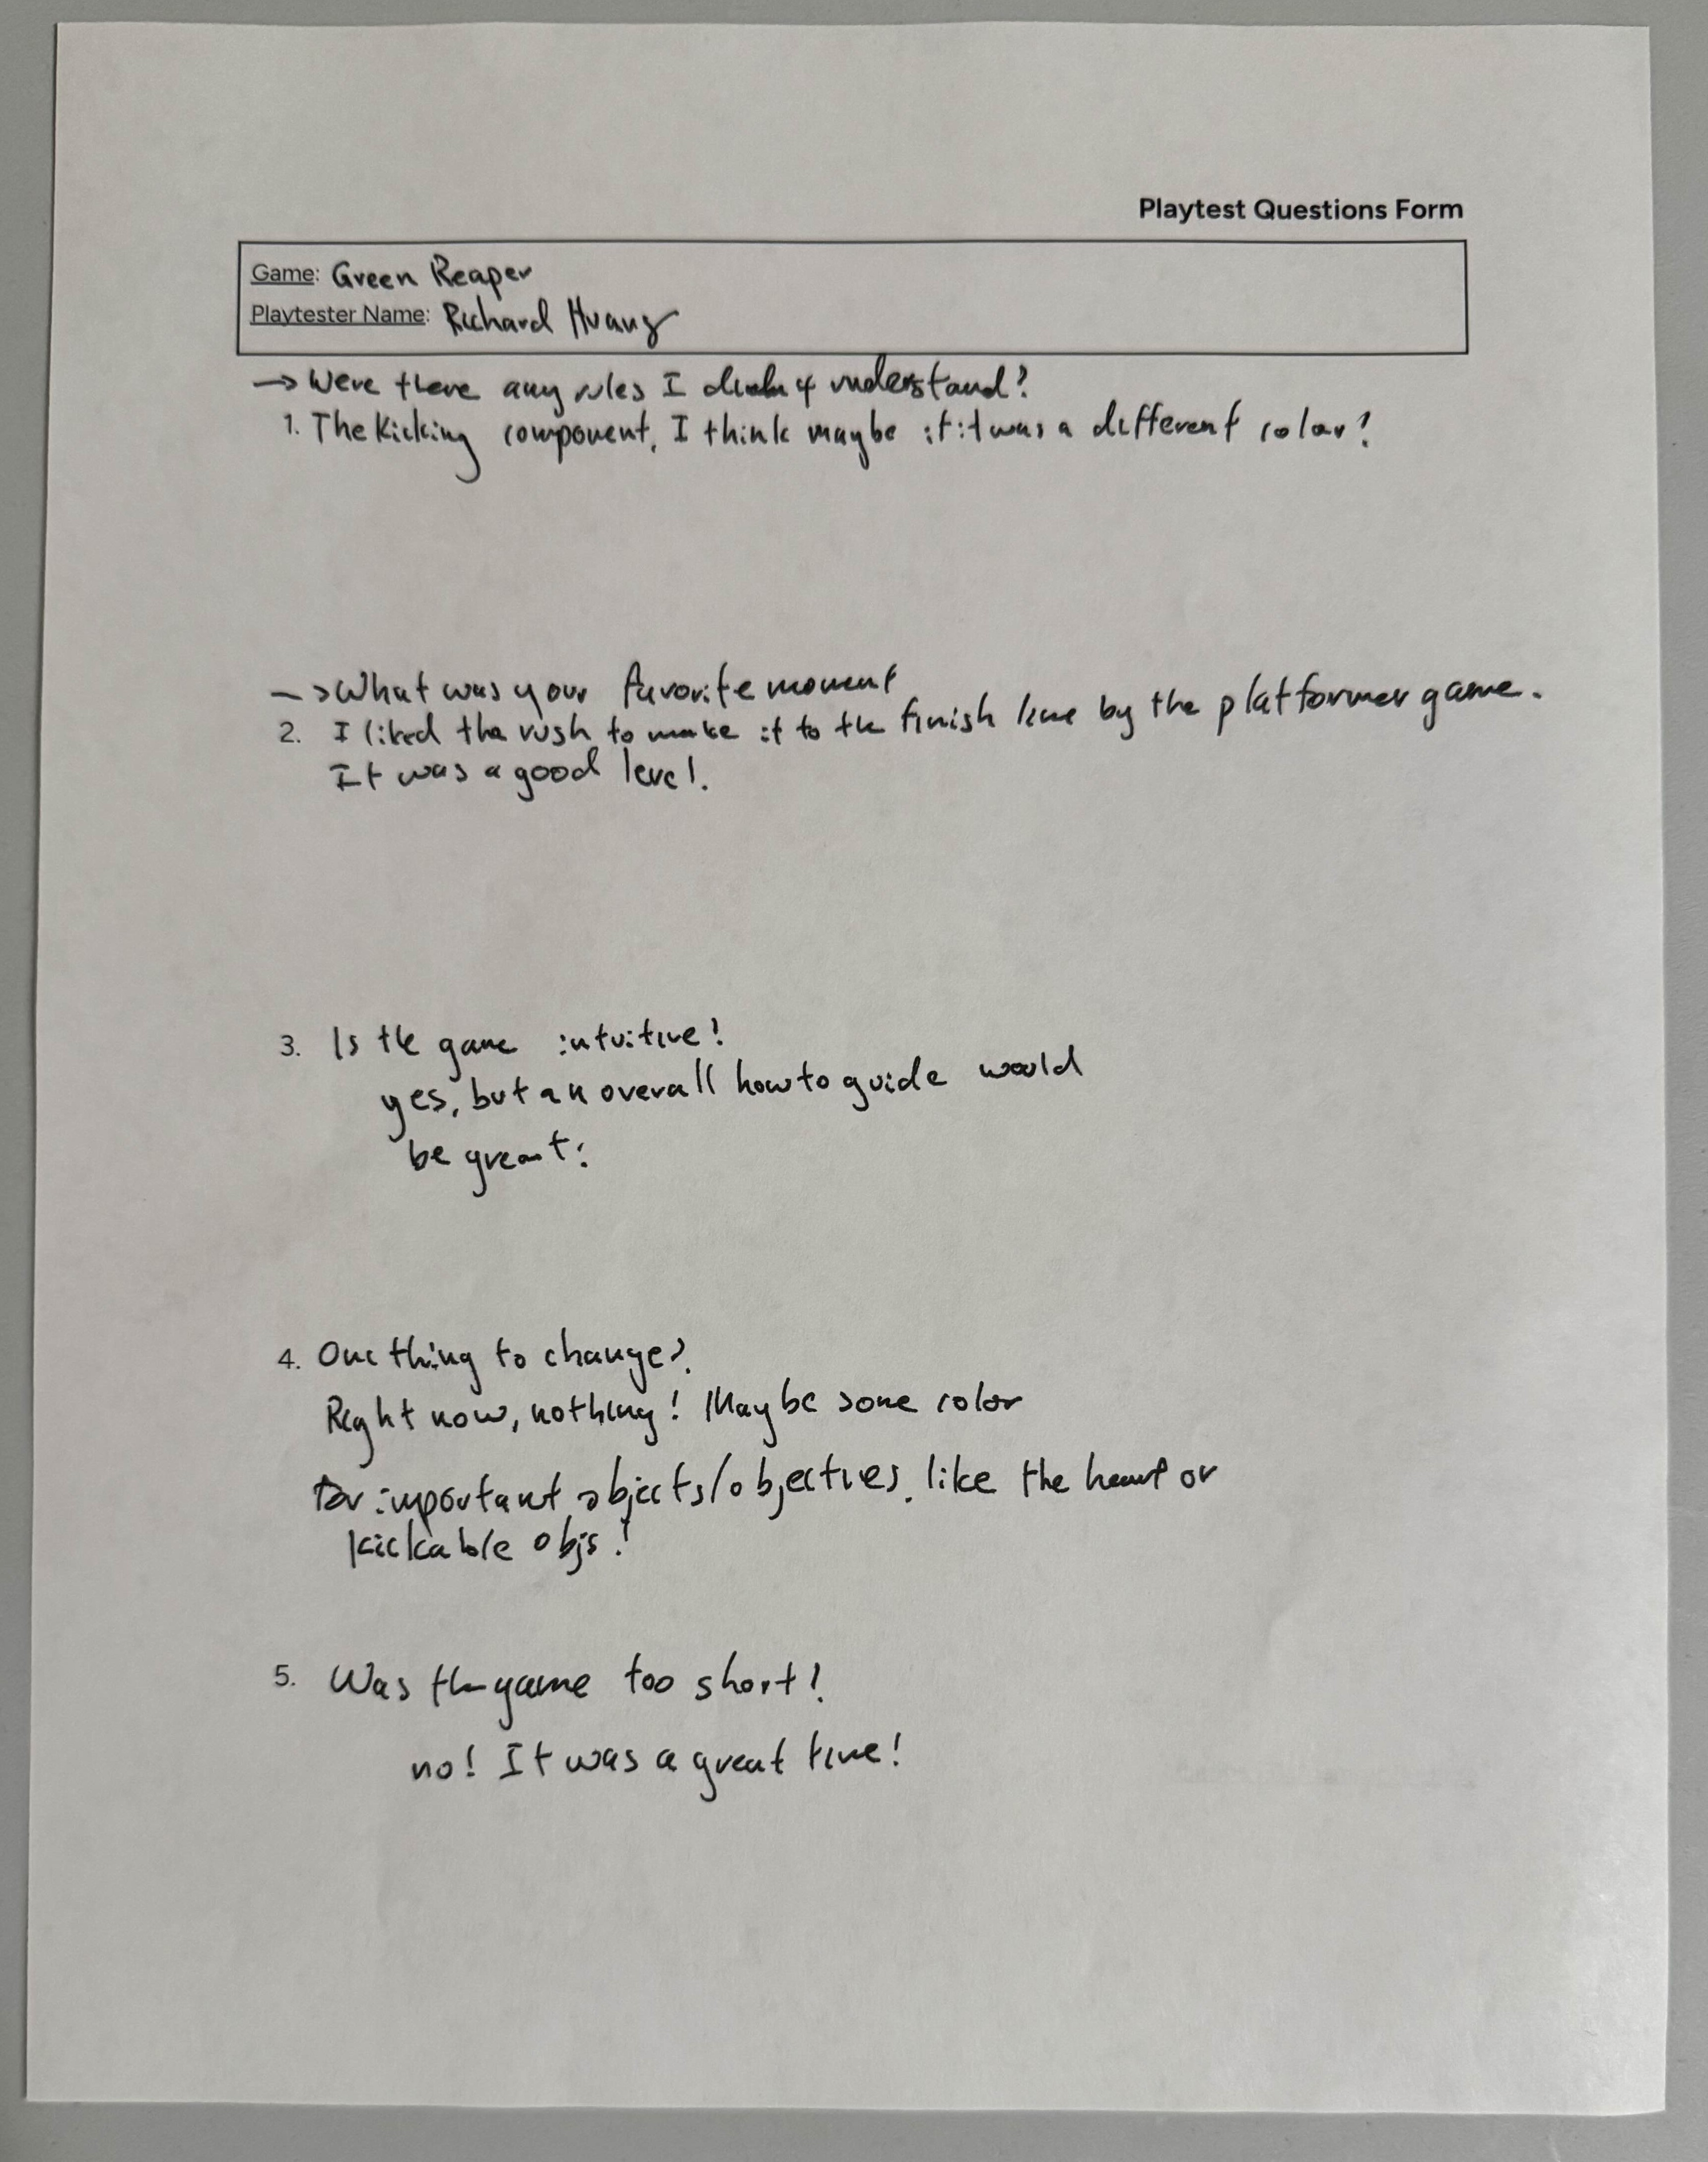 Playtest Questions Form
Game: Green Reaper
Playtester Name: Richard Huang
→ Were there any rules I didn't understand?
1. The Kicking component, I think maybe if it was a different color?
—> What was your favorite moment
2. I liked the rush to make it to the finish line by the platformer game.
It was a good level.
3. Is the game intuitive?
yes, but an overall how to guide would
be great!
4. One thing to change?
Right now, nothing! Maybe some color
for important objects/objectives, like the heart or
kickable objs!
5. Was the game too short?
no! It was a great time!